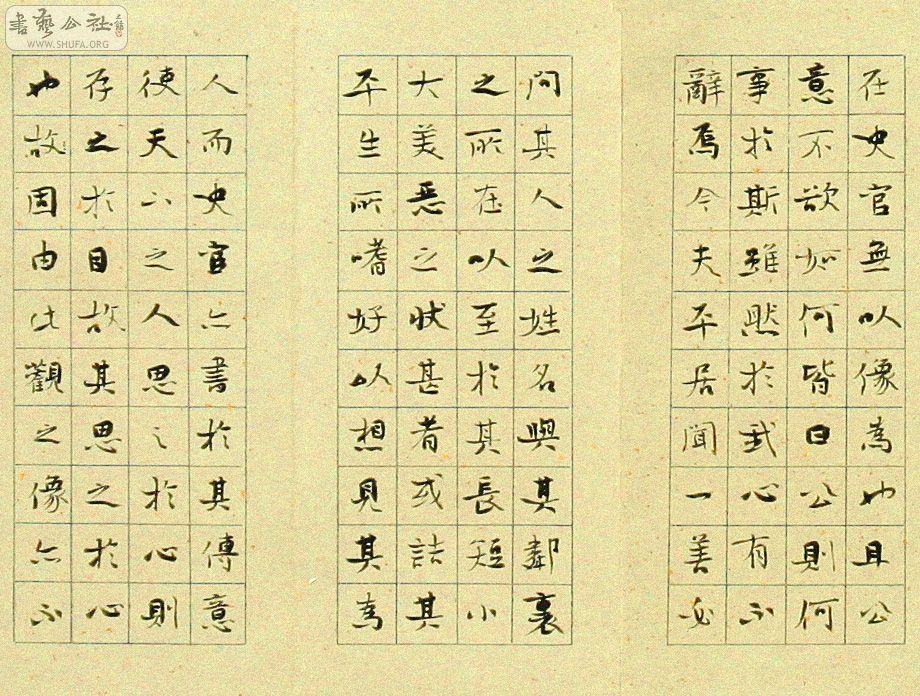 書藝公社
WWW.SHUFA.ORG
在史官無以像為也且公
意不欲如何皆曰公則何
事於斯雖然於我心有不
辭焉今夫平居聞一善必
問其人之姓名與其鄰裏
之所在以至於其長短小
大美惡之狀甚者或詰其
平生所嗜好以想見其為
人而史官亦書於其傳意
使天下之人思之於心則
存之於目故其思之於心
也故固由此觀之像亦不